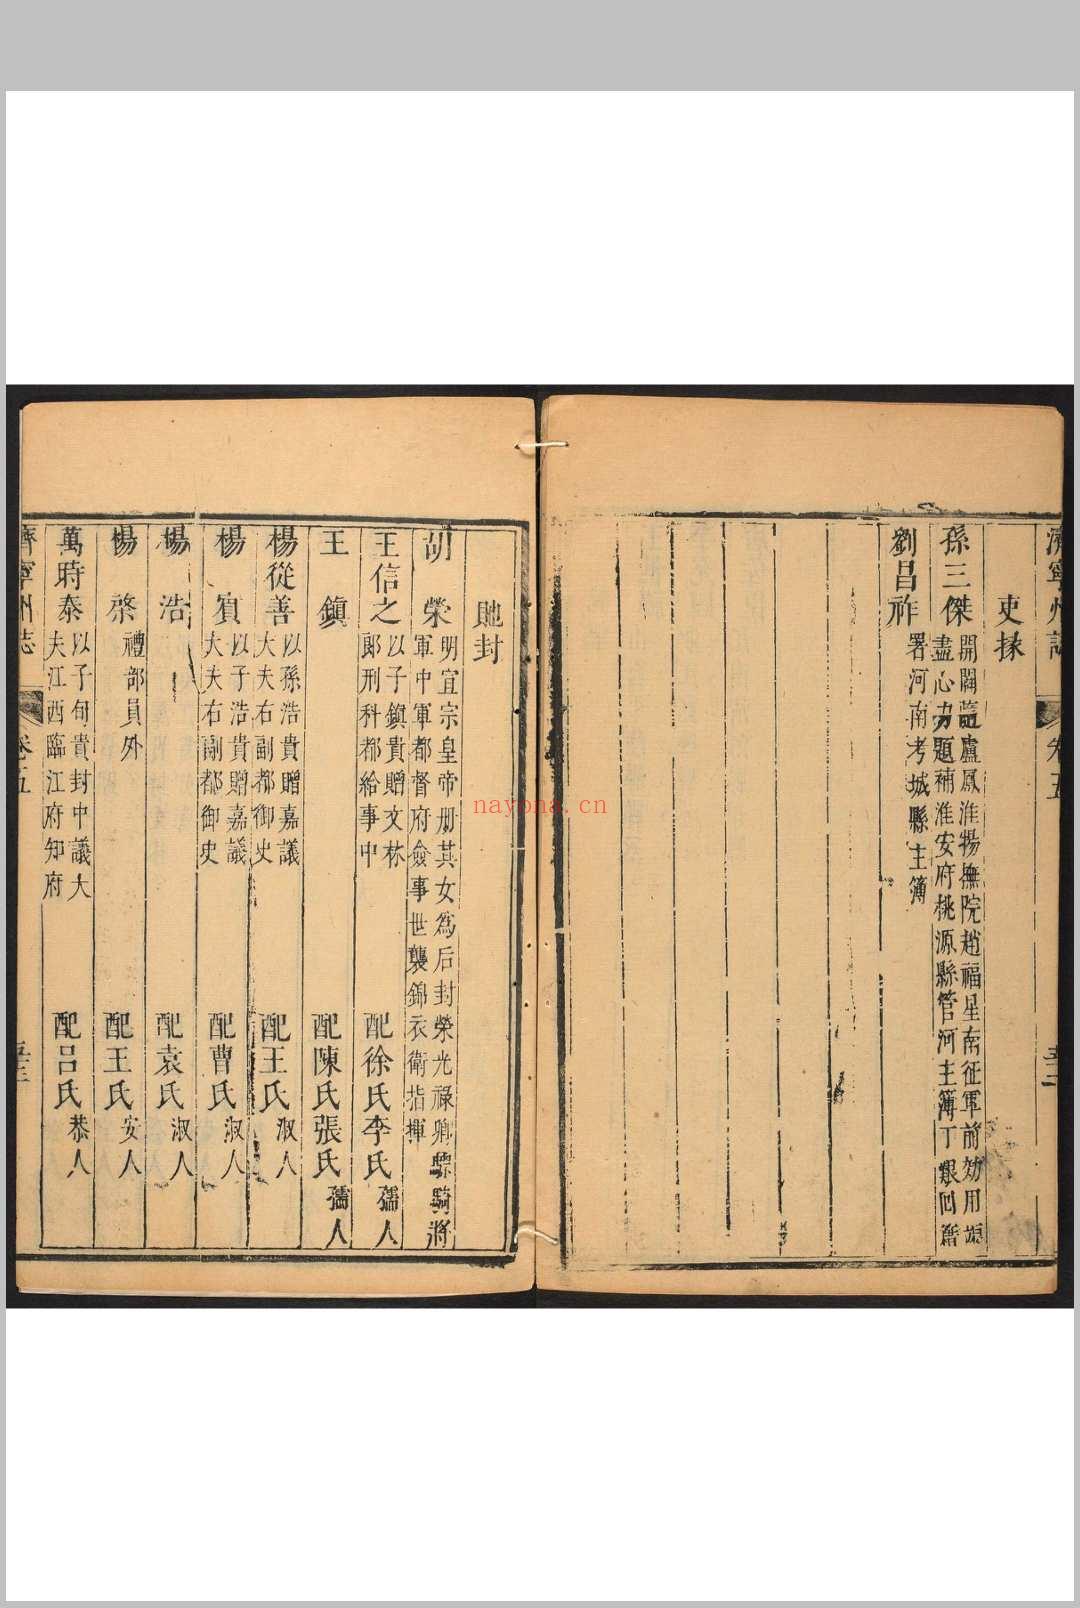 濟寧州誌
卷五
吏掾
孫三傑
開闢蘆鳳淮揚撫院趙福星南征軍前効用
盡心力題補淮安府桃源縣管河主簿丁艱回
劉昌祚
署河南考城縣主簿
貤封
胡榮
明宣宗皇帝册其女為后封榮光祿卿驃騎將
軍中軍都督府僉事世襲錦衣衛指揮
王信之
以子鎮貴贈文林
郎刑科都給事中
配徐氏李氏孺人
王鎮
配陳氏張氏孺人
楊從善
以孫浩貴贈嘉議
大夫右副都御史
配王氏淑人
楊賓
以子浩貴贈嘉議
大夫右副都御史
配曹氏淑人
楊浩
配袁氏淑人
楊
禮部員外
配王氏安人
萬時泰
以子旬貴封中議大
夫江西臨江府知府
配呂氏恭人
濟寧州誌
卷五
五三
nayona.cn